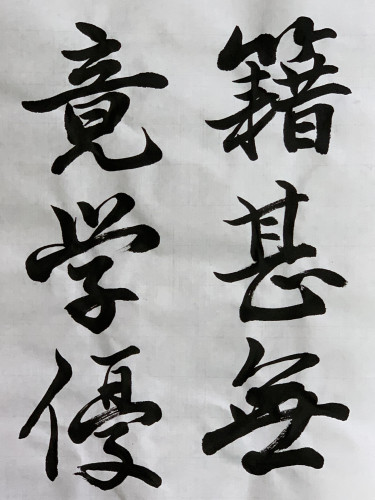 籍甚無
竟学優